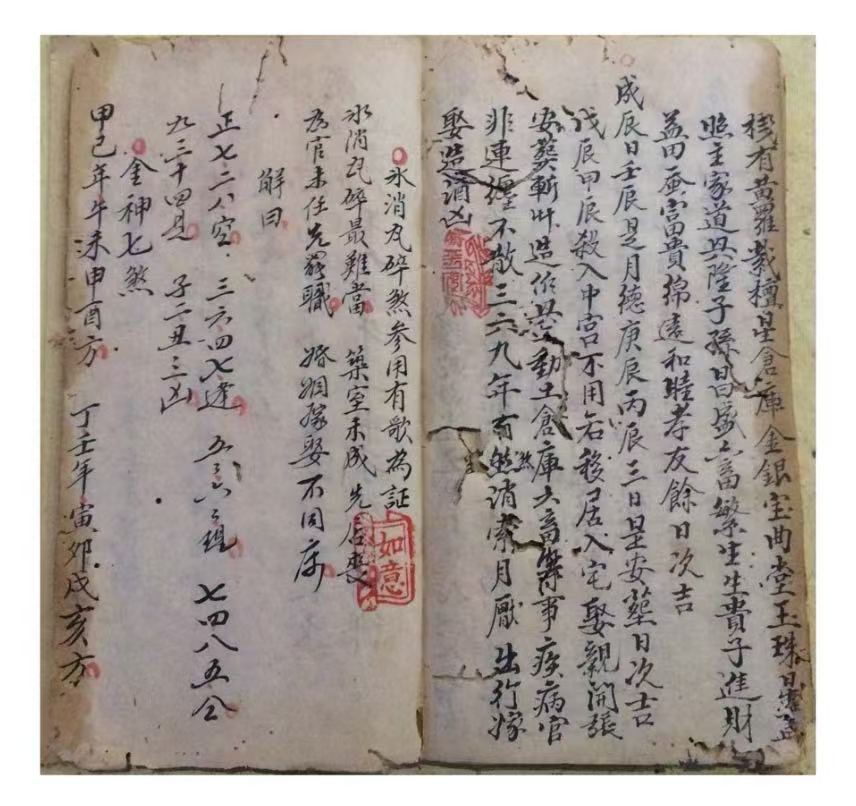 有黄羅紫檀星倉庫金銀宝曲堂玉珠
照主家道興隆子孫昌盛六畜繁生生貴子進財
益田蚕富貴綿遠和睦孝友餘日次吉
成辰日壬辰是月德庚辰丙辰三日是安葬日次吉
戊辰甲辰殺入中宫不用若移居入宅娶親開張
安葬斬草造作興工動土倉庫六畜等事疾病官
非連纏不散三六九年有煞消索月厭出行嫁
娶造酒凶
氷消瓦碎煞参用有歌為証
氷消瓦碎最難當 築室未成先后喪
為官未任先罷職 婚姻嫁娶不同
解曰
正七二八空 三六四七逢 五三六二 七四八五仝
九三十四是 子二丑三凶
金神七煞
甲己年午未申酉方 丁壬年寅卯戌亥方
如意